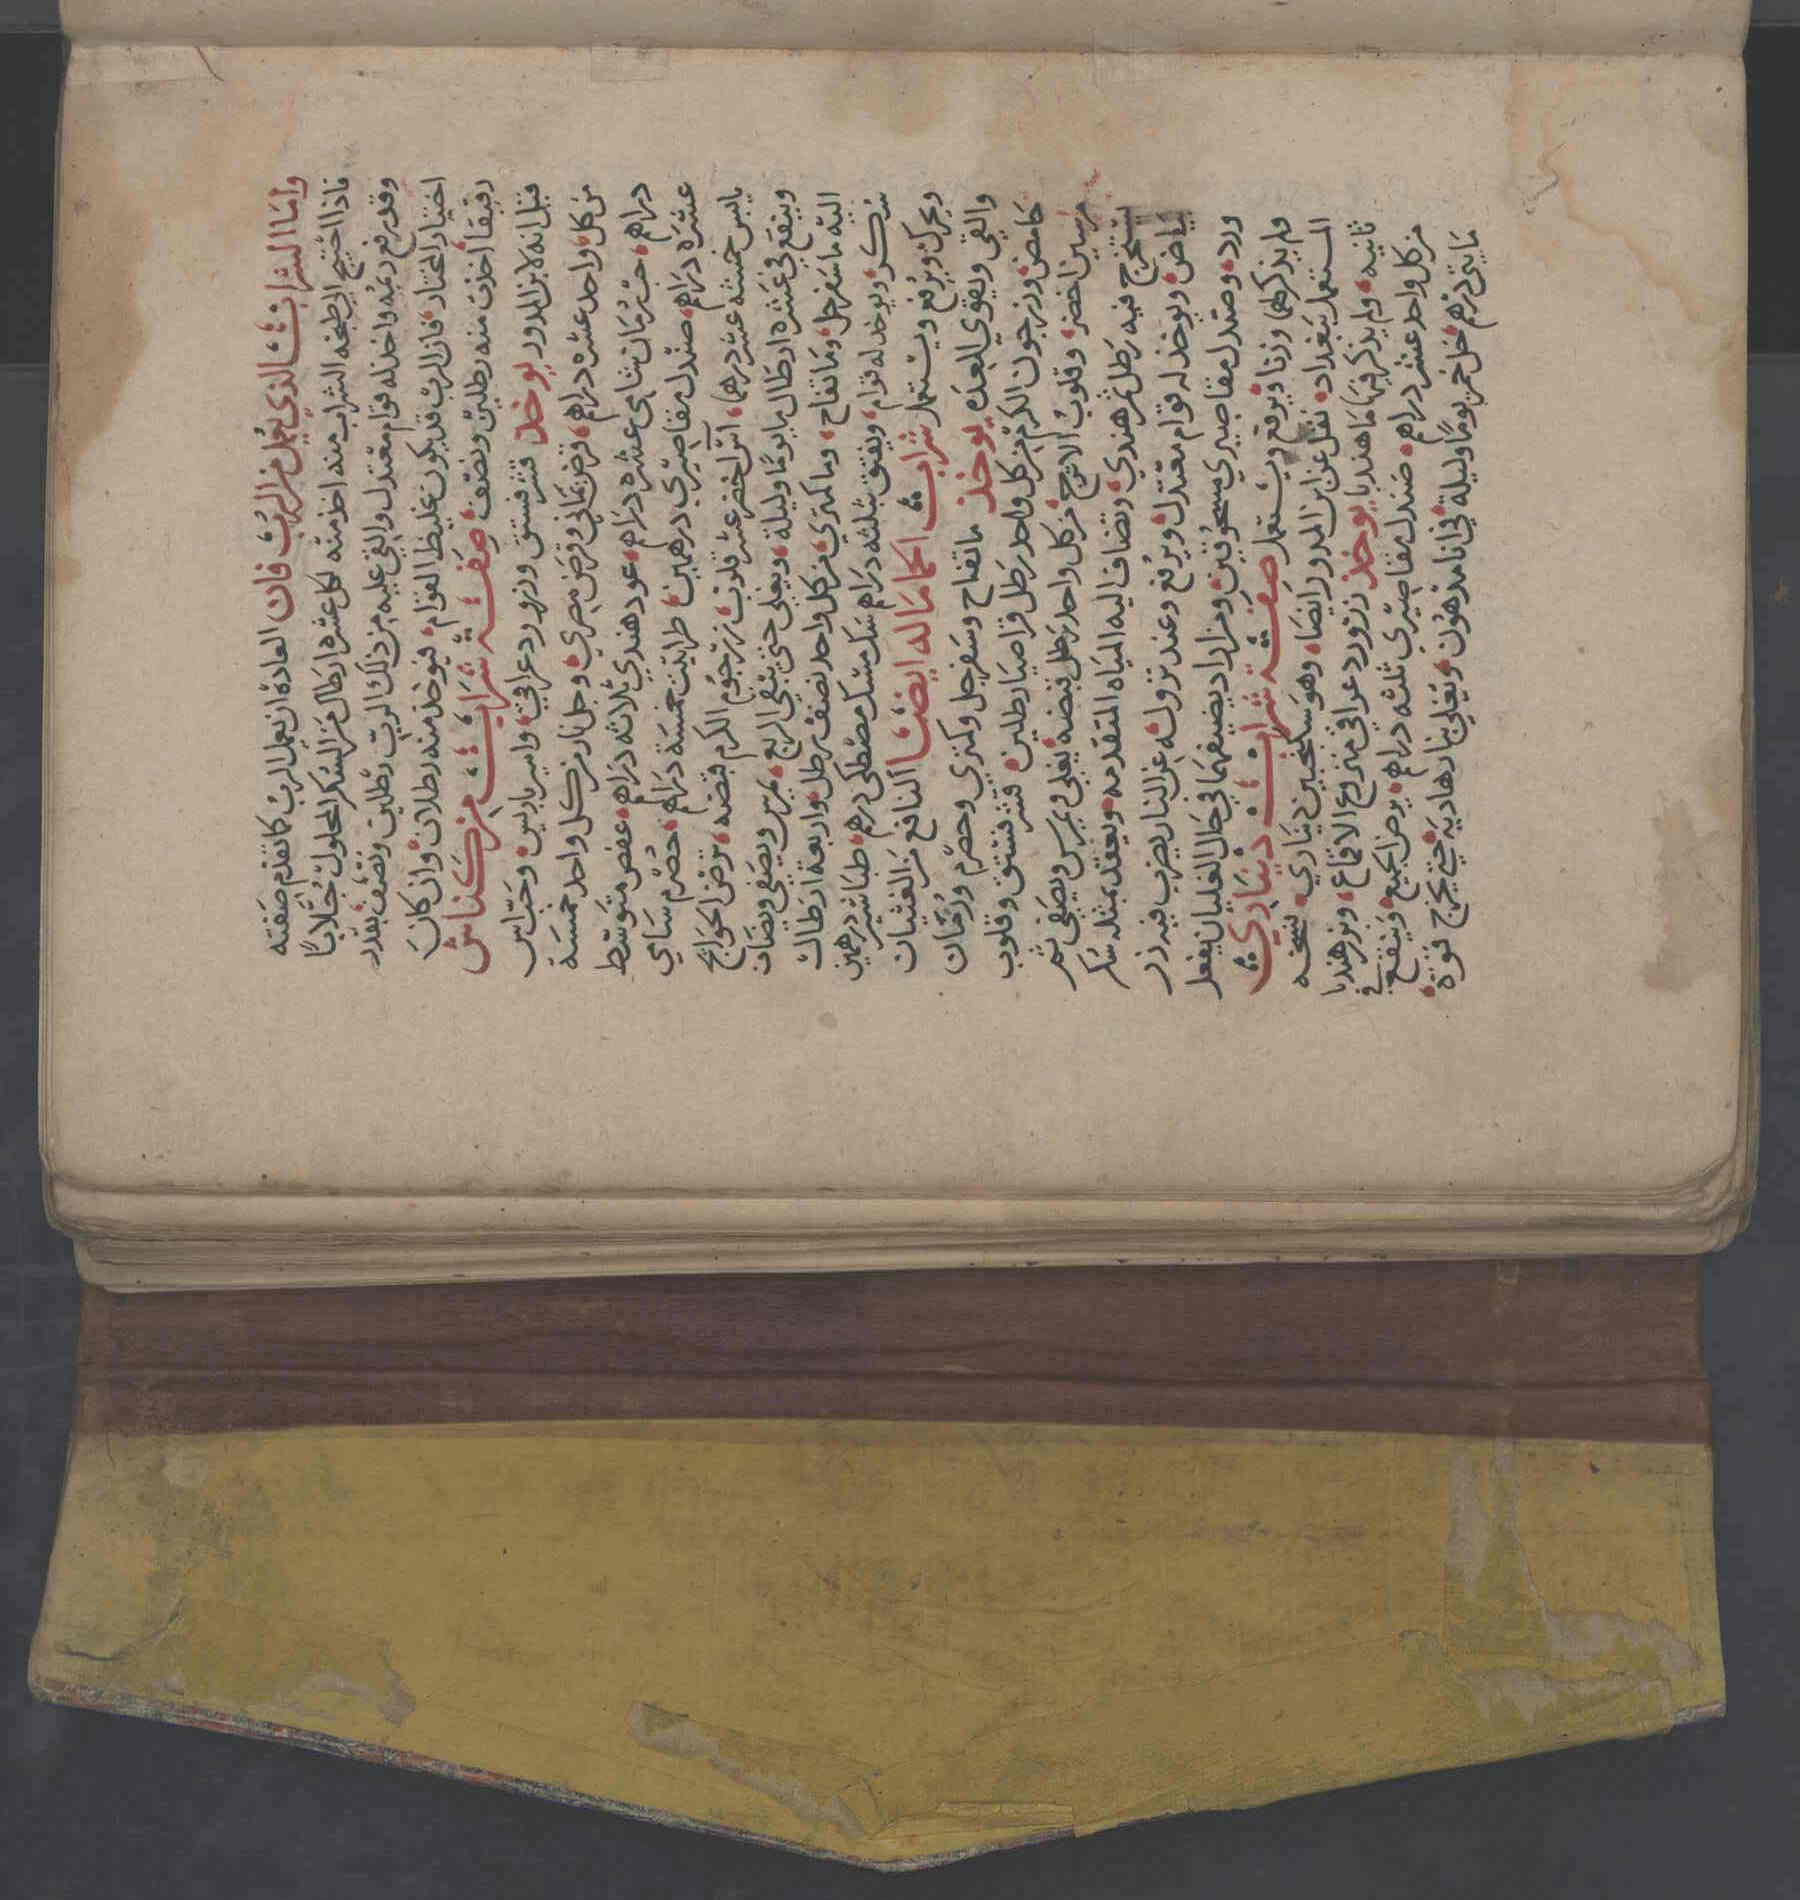 واما الشراب الذي يعمل من الرب فان العادة ان يعمل الرب كما تقدم صفته
فاذا احتيج الي طبخه الشراب منه اخذ منه لكل عشرة ارطال من السكر المحلول جلابا
وقد رفع رغوه واخذ له قوام معتدل والقي عليه من ذلك الرب رطلين ونصف بقدر
اختيار المختار فان الرب قد يكون غليظ القوام فيوخذ منه رطلان وان كان
رقيقا اخذت منه رطلين ونصف صفة شراب من كناش
قيل انه لابن المدور يوخذ قشر فستق وزر ورد عراقي وامير باريس وحب اس
من كل واحد عشره دراهم قرض يماني وقرض مصري وجلنار من كل واحد خمسة
دراهم حب رمان شامي عشره دراهم عود هندي ثلاثه دراهم عفص متوسط
عشره دراهم صندل مقاصيري درهمين طراثيث خمسة دراهم حصرم شامي
يابس خمسه عشر درهما اس اخضر عشر قلوب زرجوم الكرم قبضه ترض الحوايج
وينقع في عشره ارطال ما يوما وليلة ويغلي حتي ينقي الربع يمرس ويصفي ويضاف
اليه ما سفرجل وما تفاح وما كمتري من كل واحد نصف رطل واربعة ارطال
سكر ويوخذ له قوام ويفتق بثلثه دراهم سك مسك مصطكى درهم طباشير درهمين
ويحرك ويرفع ويستعمل شراب الحماما له ايضا النافع من الغثيان
والقي ويقوي المعده يوخذ ما تفاح وسفرجل وكمتري وحصرم ورمان
حامض وزرجون الكرم من كل واحد رطل قراصيا رطلين قشر فستق وقلوب
مرسين اخضر وقلوب الاترج من كل واحد رطل قبضه يغلي ويمرس ويصفي ثم
يستخرج فيه رطل تمر هندي وتضاف اليه المياه المتقدمه ويعقد بمثله سكر
بياض ويوخذ له قوام معتدل ويرفع وعند نزوله عن النار يضرب فيه زر
ورد وصندل مقاصيري مسحوقين ومن اراد يضيفهما في حال الغليان يفعل
ولم يذكر لهما وزنا ويرفع ويستعمل صفة شراب ديناري
المستعمل ببغداد نقل عن ابن المدور ايضا وهو سكنجبين ديناري نسخه
ثانيه ولم يذكر فيها ما هندبا يوخذ زر ورد عراقي منزوع الاقماع وبزر هندبا
من كل واحد عشر دراهم صندل مقاصيري ثلثه دراهم يرض الجميع وينقع في
مايتي درهم خل خمر يوما وليلة في انا مدهون ويغلي بنار هادية حتي يخرج قوة